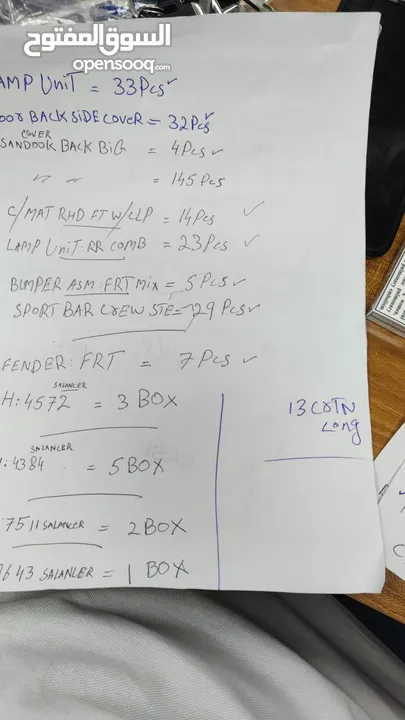 السوق المفتوح
opensooq.com
AMP UNIT = 33Pcs
oor BACK SIDE COVER = 32Pcs
COVER
SANDOOK BACK BIG = 4Pcs
〃 〃 = 145 Pcs
C/MAT RHD FT W/LLP = 14Pcs
LAMP UNIT RR COMB = 23Pcs
BUMPER ASM: FRT mix = 5 Pcs
SPORT BAR CREW STE = 29 Pcs
FENDER: FRT = 7 Pcs
SALANCER
H: 4572 = 3 BOX
13 CRTN
Long
SALANCER
: 4384 = 5 BOX
7511 SALANCER = 2 BOX
643 SALANCER = 1 BOX